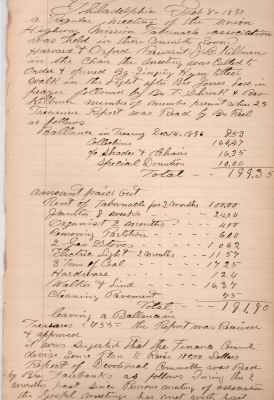 Philadelphia Feb 8 - 1897
a regular meeting of the union
Highway Mission Tabernacle association
was held in their Committe Room
Harvard & Oxford Brocount J. C. Kilburn
in the Chair the meeting was Called to
Order & opened By Singing Hymn
Walk in the light after Bro Jones led in
prayer followed by Bro T. Shrank & Bro
Kilburn number of members present when 23
Treasure Report was Read by Bro
as follows
Ballance in Treasury Dec 14. 1896 853
Collections 16447
Jo Shades & Chairs 1635
Special Donation 10.00
Total - 19935
amount paid out
Rent of Tabernacle for 2 months 100.00
Janitor 8 weeks - - - 24.00
Organist 2 months
Removing Partition - - 600
2 Gas Stoves - - - 1062
Electric Light 2 months - - 1157
3 Tons of Coal - - - 1725
Hardware - - - 124
Walter & Lind - - 1637
Cleaning Pavement 75
Total - 19180
leaving a Ballance in
Treasure - $755 - the Report was Received
& approved
it was sugested that the Finance Commite
devise Some Plan to Rais 100.00 Dollars
Report of Devotional Committy was Read
by Bro Fairbanks as follows During the 2
months past since Previous meeting of association
the Gospel meetings has met with great